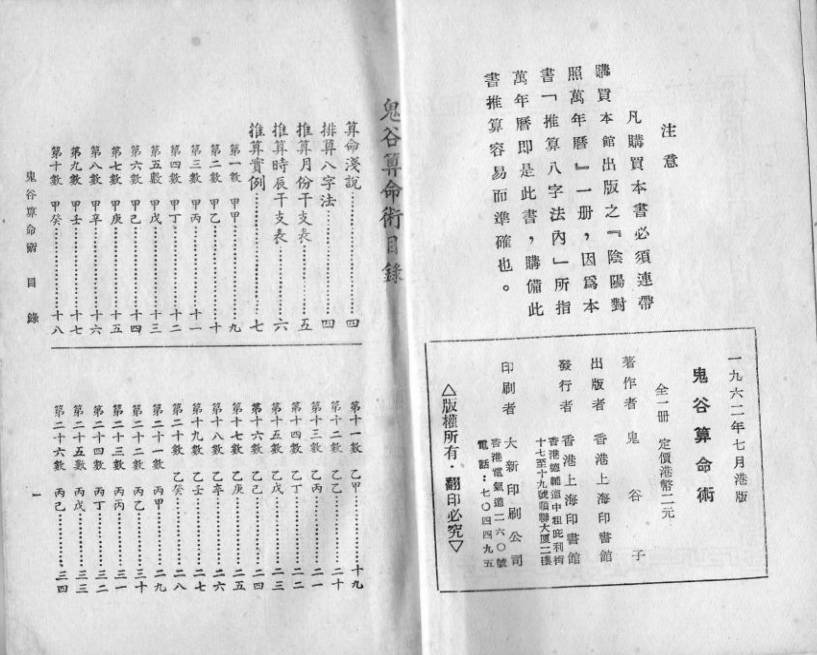 注意
凡購買本書必須連帶
購買本館出版之『陰陽對
照萬年曆』一册，因爲本
書「推算八字法內」所指
萬年曆即是此書，購備此
書推算容易而準確也。
一九六二年七月港版
鬼谷算命術
全一册 定價港幣二元
著作者 鬼谷子
出版者 香港上海印書館
發行者 香港上海印書館
香港德輔道中租庇利街
十七至十九號順聯大廈二樓
印刷者 大新印刷公司
香港電氣道二六〇號
電話：七〇四四九五
△版權所有・翻印必究▽
鬼谷算命術目錄
算命淺說…………四
排算八字法…………四
推算月份干支表…………五
推算時辰干支表…………六
推算實例…………七
第一數 甲甲…………九
第二數 甲乙…………十
第三數 甲丙…………十一
第四數 甲丁…………十二
第五數 甲戊…………十三
第六數 甲己…………十四
第七數 甲庚…………十五
第八數 甲辛…………十六
第九數 甲壬…………十七
第十數 甲癸…………十八
第十一數 乙甲…………十九
第十二數 乙乙…………二十
第十三數 乙丙…………二一
第十四數 乙丁…………二二
第十五數 乙戊…………二三
第十六數 乙己…………二四
第十七數 乙庚…………二五
第十八數 乙辛…………二六
第十九數 乙壬…………二七
第二十數 乙癸…………二八
第二十一數 丙甲…………二九
第二十二數 丙乙…………三十
第二十三數 丙丙…………三一
第二十四數 丙丁…………三二
第二十五數 丙戊…………三三
第二十六數 丙己…………三四
鬼谷算命術 目錄
一